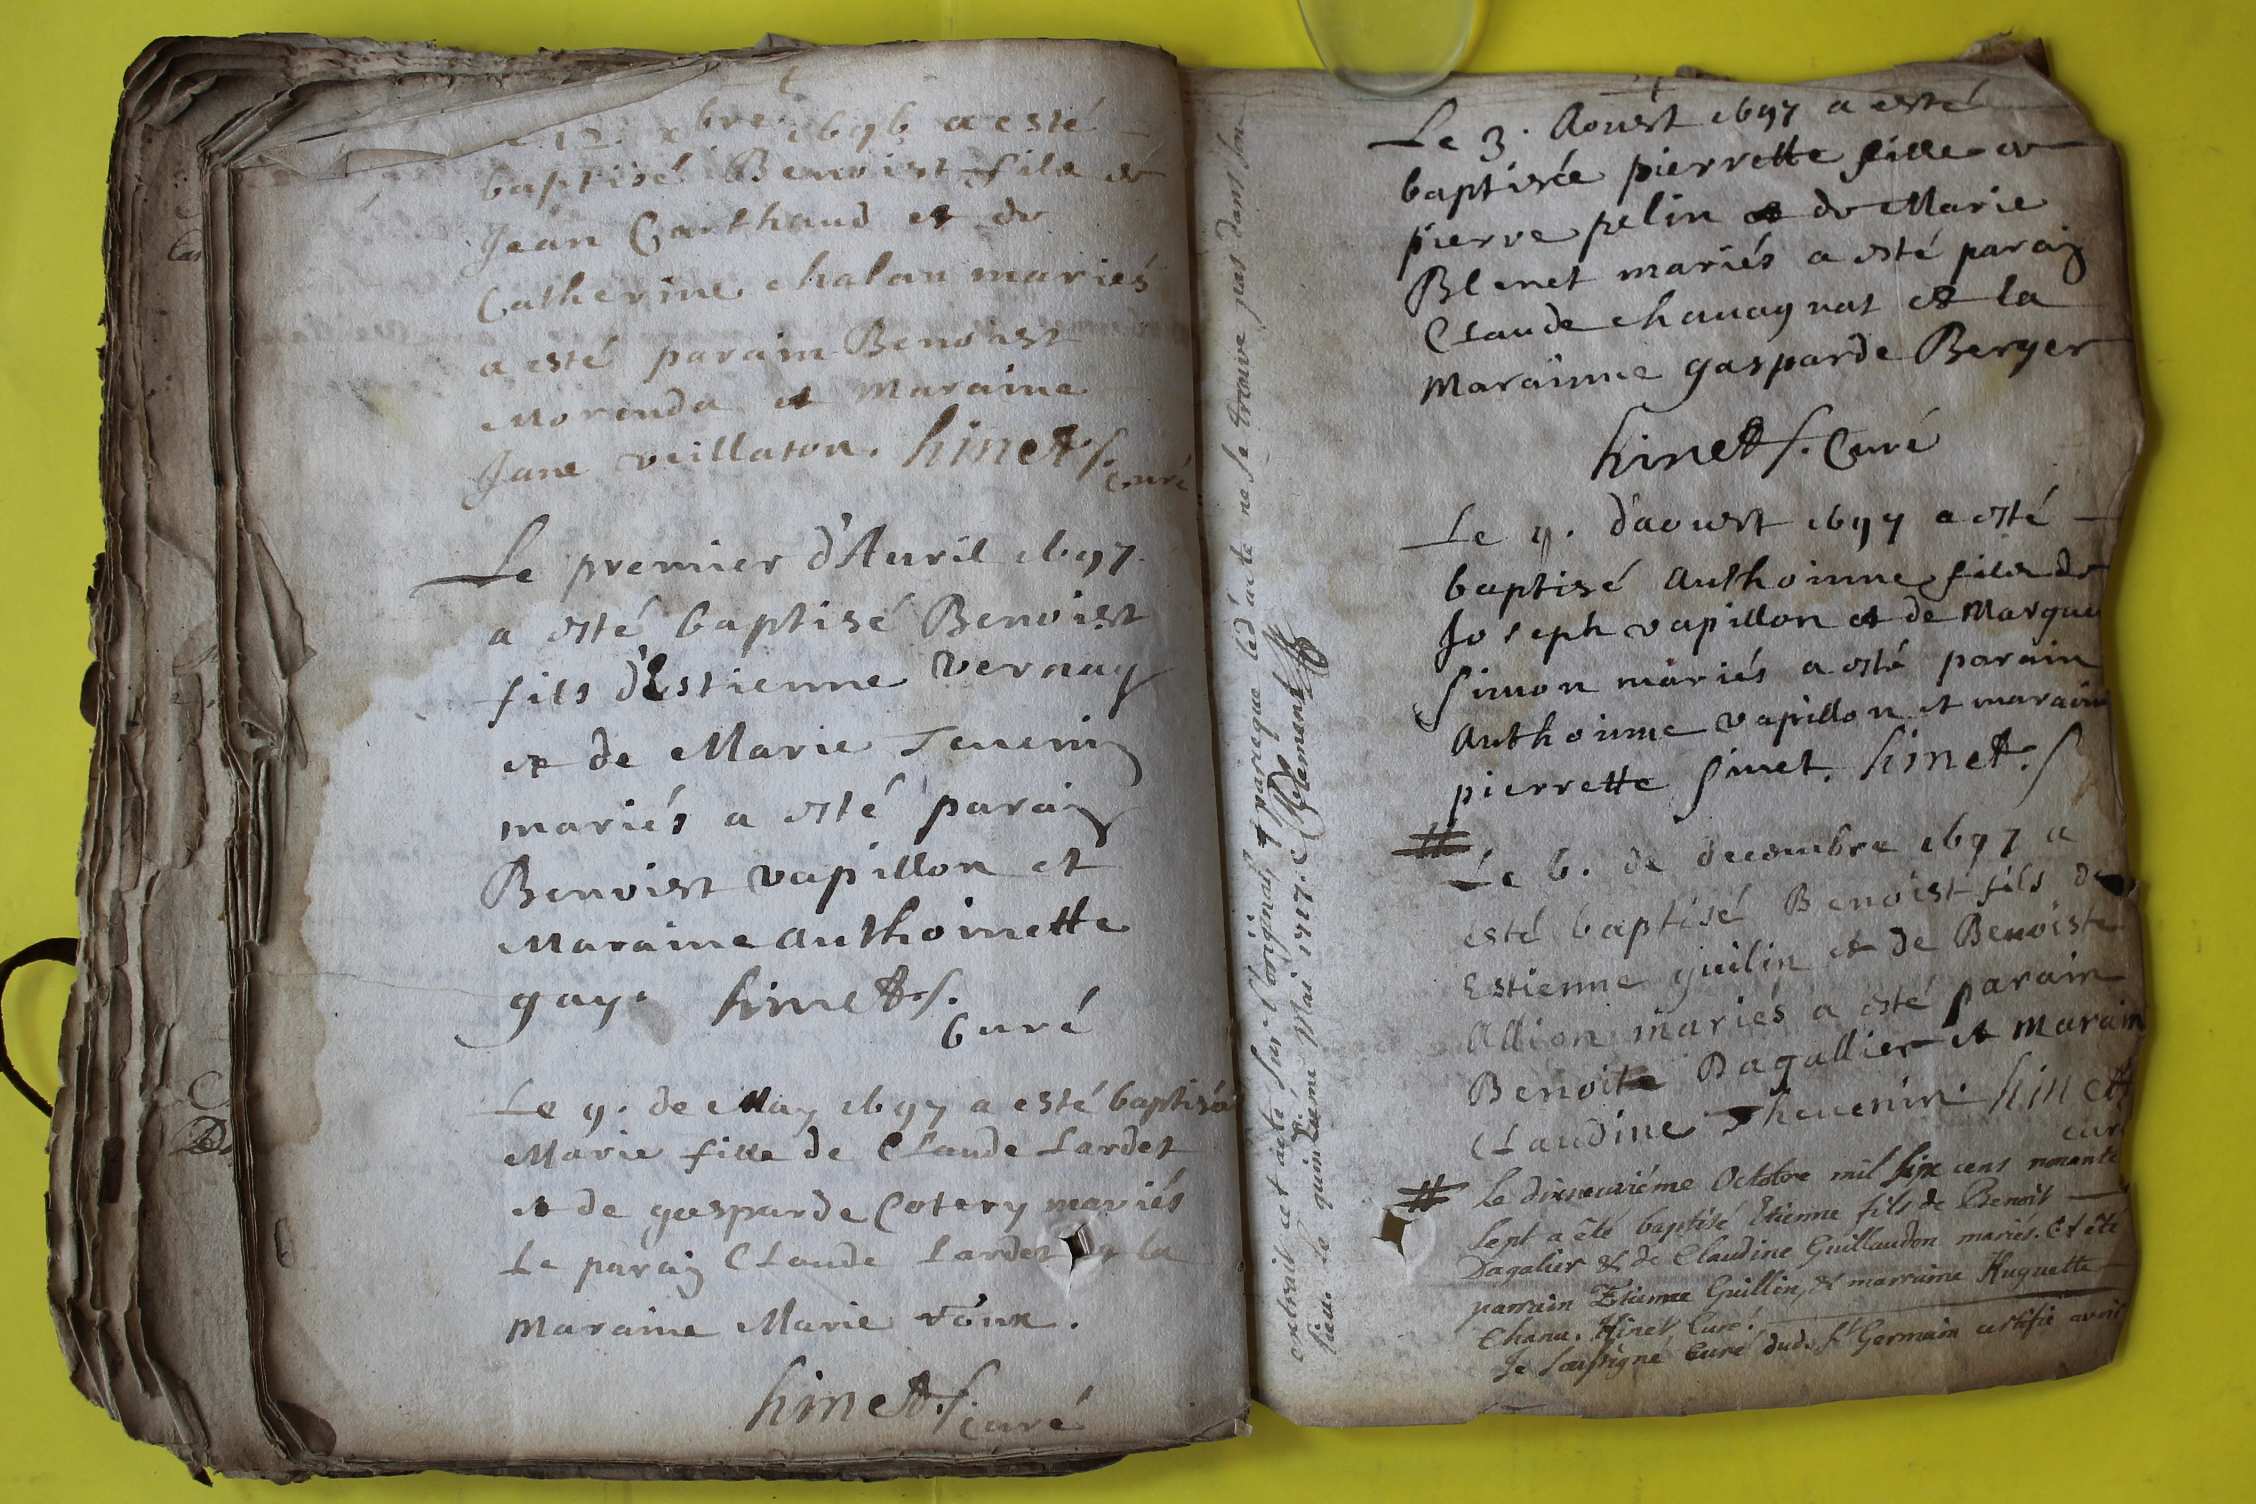 12. xbre. 1696 a esté
baptisé Benoist fils de
Jean Carthaud et de
Catherine chalan mariés
a esté parain Benoist
Morenda et Maraine
Jane veillaton. hinet s.
curé
Le premier d'Auril 1697.
a esté baptisé Benoist
fils d'Estienne vernay
et de Marie Teuenin
mariés a esté parain
Benoist vapillon et
Maraine anthoinette
gay. hinet s.
Curé
Le 9. de May 1697 a esté baptisée
Marie fille de Claude Lardet
et de gasparde Cotery mariés
Le parain Claude Lardet et la
Maraine Marie roux.
hinet s. curé
Le 3. Aoust 1697 a esté
baptisée pierrette fille de
pierre pelin et de Marie
Blenet mariés a esté parain
Claude chauagnat et la
Marainne gasparde Berger
hinet s. Curé
Le 9. d'aoust 1697 a esté
baptisé anthoinne fils de
Joseph vapillon et de Margue
Simon mariés a esté parain
anthoinne vapillon et marain
pierrette sinet. hinet. s
Le 6. de decembre 1697 a
esté baptisé Benoist fils de
Estienne guilin et de Benoiste
Allion mariés a esté parain
Benoite Dagallier et marain
Claudine Theuenin. hinet
cur
# Le dixneuviéme Octobre mil six cens nonante
sept a été baptisé Etienne fils de Benoit
Dagalier & de Claudine Guillaudon mariés. Et été
parrain Etienne Guillin, & marraine Huguette
Chana. Hinet Curé.
Je soussigné Curé dud. St Germain certifie avoir
extrait cet acte sur l'original, & parceque led. acte ne se trouve pas dans son
lieu. le quinziéme Mai 1717. Clement